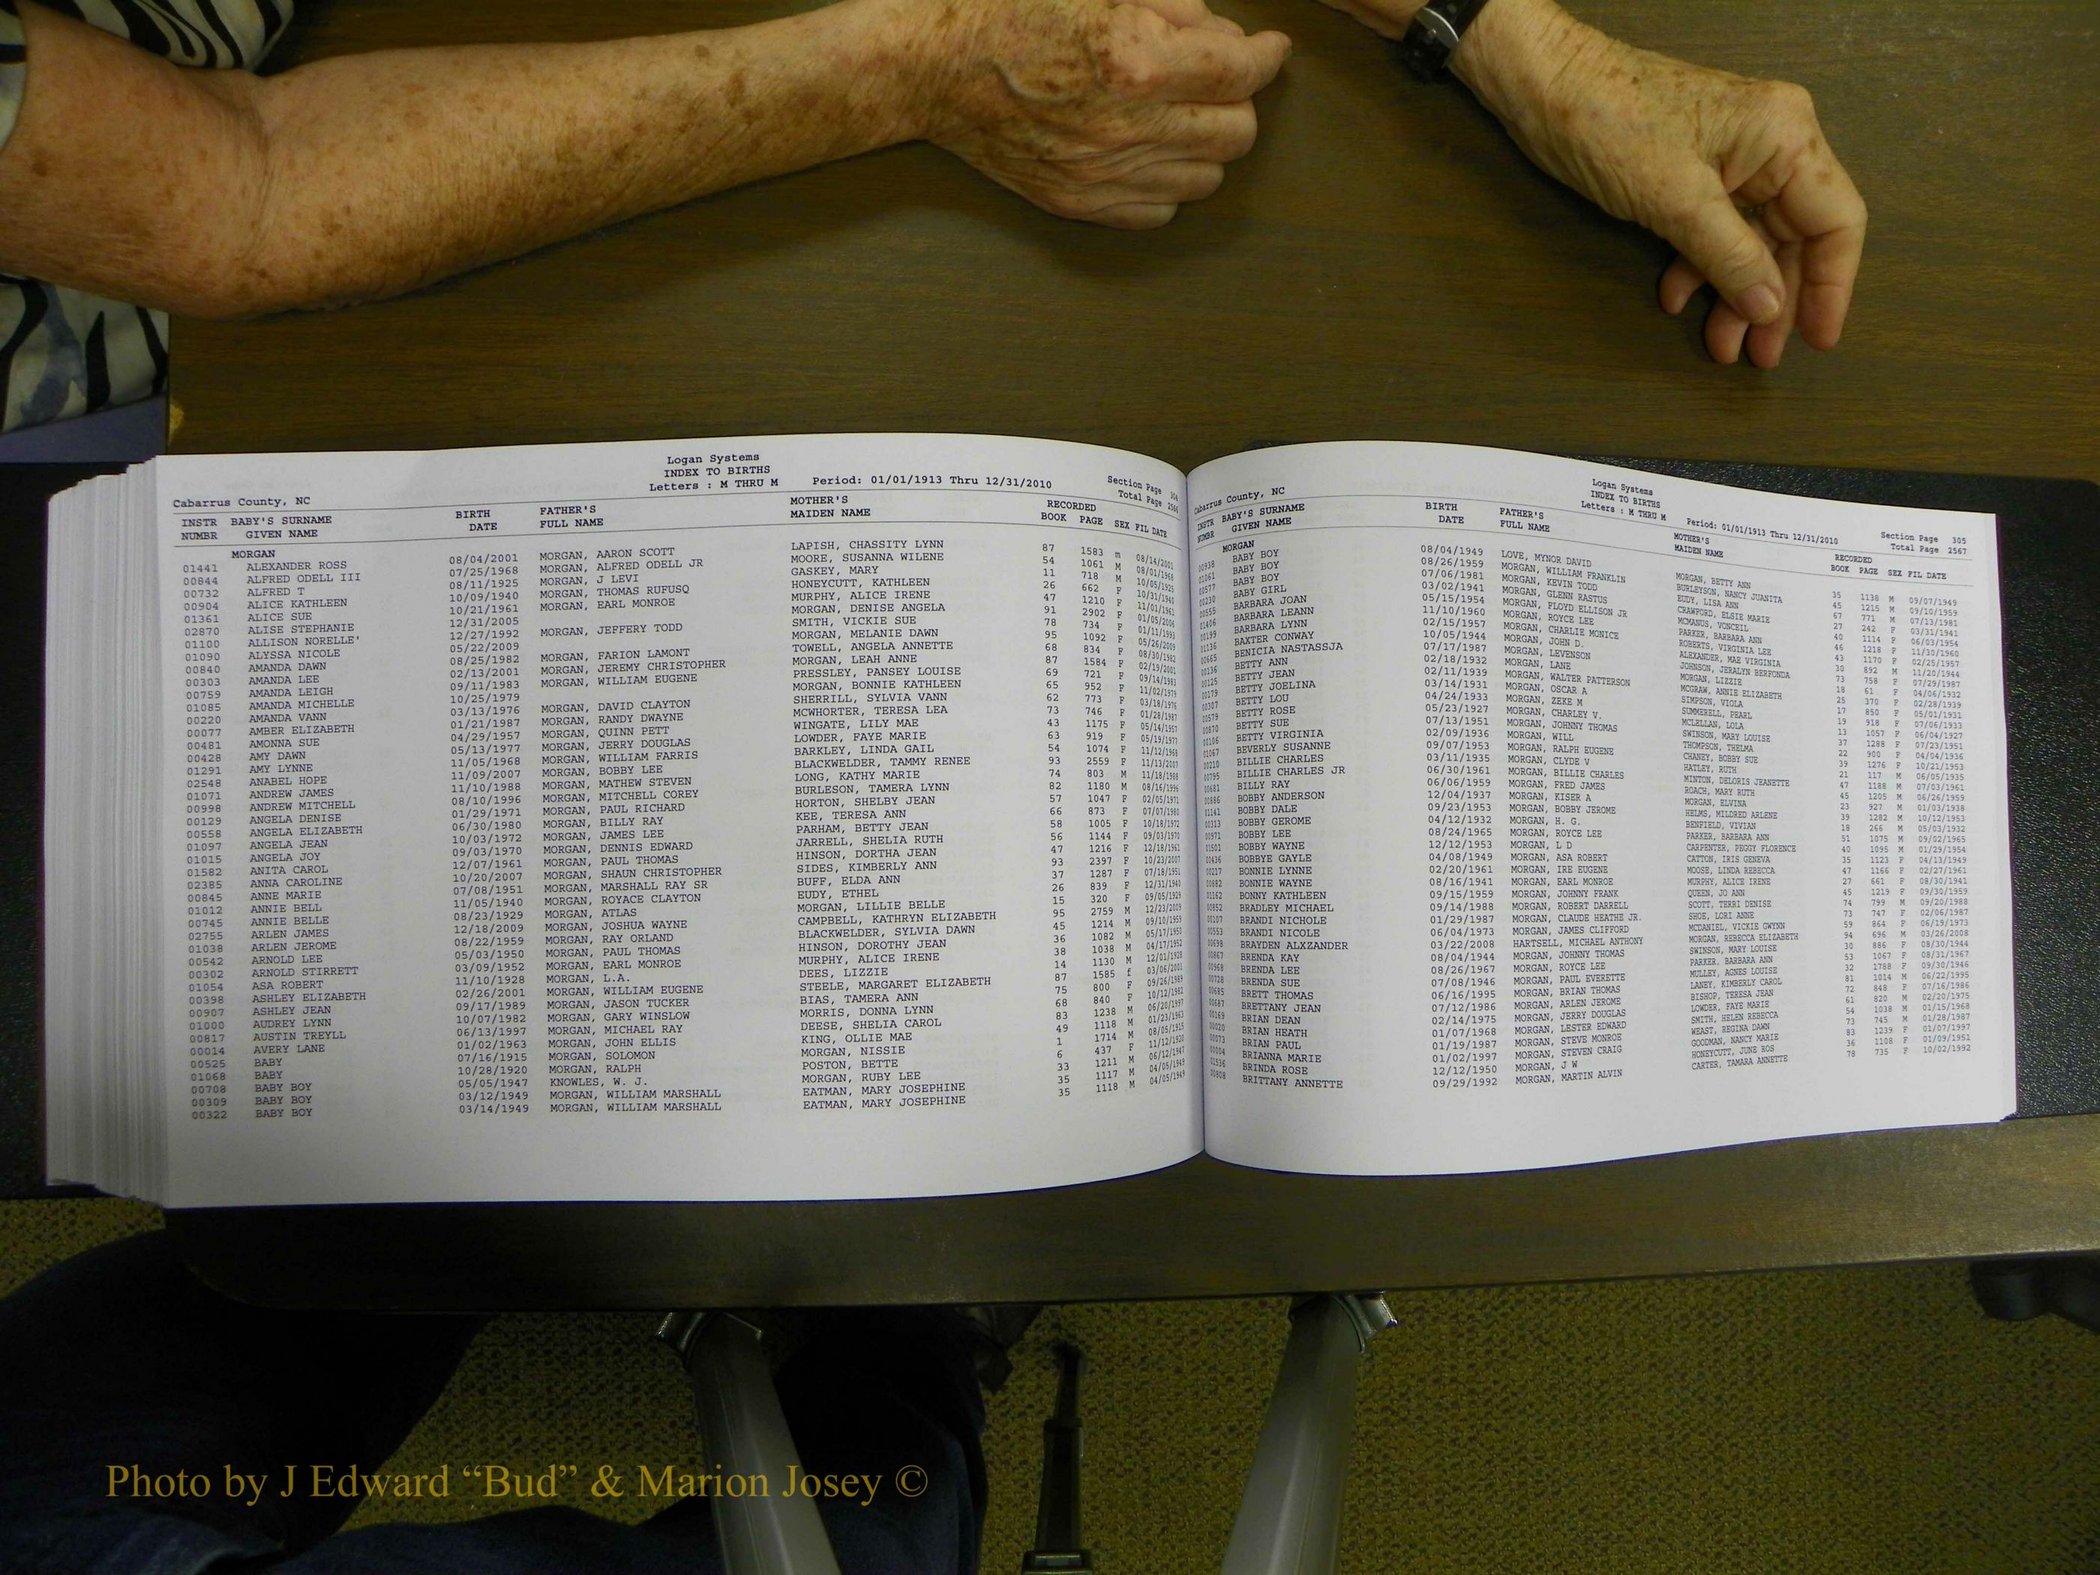 Logan Systems
INDEX TO BIRTHS
Letters : M THRU M Period: 01/01/1913 Thru 12/31/2010
Section Page
Total Page 2566
Cabarrus County, NC
INSTR BABY'S SURNAME BIRTH FATHER'S MOTHER'S RECORDED
NUMBR GIVEN NAME DATE FULL NAME MAIDEN NAME BOOK PAGE SEX FIL DATE
MORGAN
01441 ALEXANDER ROSS 08/04/2001 MORGAN, AARON SCOTT LAPISH, CHASSITY LYNN 87 1583 m 08/14/2001
00844 ALFRED ODELL III 07/25/1968 MORGAN, ALFRED ODELL JR MOORE, SUSANNA WILENE 54 1061 M 08/01/1968
00732 ALFRED T 08/11/1925 MORGAN, J LEVI GASKEY, MARY 11 718 M 10/05/1925
00904 ALICE KATHLEEN 10/09/1940 MORGAN, THOMAS RUFUSQ HONEYCUTT, KATHLEEN 26 662 F 10/31/1940
01361 ALICE SUE 10/21/1961 MORGAN, EARL MONROE MURPHY, ALICE IRENE 47 1210 F 11/01/1961
02870 ALISE STEPHANIE 12/31/2005 MORGAN, DENISE ANGELA 91 2902 F 01/05/2006
01100 ALLISON NORELLE' 12/27/1992 MORGAN, JEFFERY TODD SMITH, VICKIE SUE 78 734 F 01/11/1993
01090 ALYSSA NICOLE 05/22/2009 MORGAN, MELANIE DAWN 95 1092 F 05/26/2009
00840 AMANDA DAWN 08/25/1982 MORGAN, FARION LAMONT TOWELL, ANGELA ANNETTE 68 834 F 08/30/1982
00303 AMANDA LEE 02/13/2001 MORGAN, JEREMY CHRISTOPHER MORGAN, LEAH ANNE 87 1584 F 02/19/2001
00759 AMANDA LEIGH 09/11/1983 MORGAN, WILLIAM EUGENE PRESSLEY, PANSEY LOUISE 69 721 F 09/14/1983
01085 AMANDA MICHELLE 10/25/1979 MORGAN, BONNIE KATHLEEN 65 952 F 11/02/1979
00220 AMANDA VANN 03/13/1976 MORGAN, DAVID CLAYTON SHERRILL, SYLVIA VANN 62 773 F 03/18/1976
00077 AMBER ELIZABETH 01/21/1987 MORGAN, RANDY DWAYNE MCWHORTER, TERESA LEA 73 746 F 01/28/1987
00481 AMONNA SUE 04/29/1957 MORGAN, QUINN PETT WINGATE, LILY MAE 43 1175 F 05/14/1957
00428 AMY DAWN 05/13/1977 MORGAN, JERRY DOUGLAS LOWDER, FAYE MARIE 63 919 F 05/19/1977
01291 AMY LYNNE 11/05/1968 MORGAN, WILLIAM FARRIS BARKLEY, LINDA GAIL 54 1074 F 11/12/1968
02548 ANABEL HOPE 11/09/2007 MORGAN, BOBBY LEE BLACKWELDER, TAMMY RENEE 93 2559 F 11/13/2007
01071 ANDREW JAMES 11/10/1988 MORGAN, MATHEW STEVEN LONG, KATHY MARIE 74 803 M 11/18/1988
00998 ANDREW MITCHELL 08/10/1996 MORGAN, MITCHELL COREY BURLESON, TAMERA LYNN 82 1180 M 08/16/1996
00129 ANGELA DENISE 01/29/1971 MORGAN, PAUL RICHARD HORTON, SHELBY JEAN 57 1047 F 02/05/1971
00558 ANGELA ELIZABETH 06/30/1980 MORGAN, BILLY RAY KEE, TERESA ANN 66 873 F 07/07/1980
01097 ANGELA JEAN 10/03/1972 MORGAN, JAMES LEE PARHAM, BETTY JEAN 58 1005 F 10/18/1972
01015 ANGELA JOY 09/03/1970 MORGAN, DENNIS EDWARD JARRELL, SHELIA RUTH 56 1144 F 09/03/1970
01582 ANITA CAROL 12/07/1961 MORGAN, PAUL THOMAS HINSON, DORTHA JEAN 47 1216 F 12/18/1961
02385 ANNA CAROLINE 10/20/2007 MORGAN, SHAUN CHRISTOPHER SIDES, KIMBERLY ANN 93 2397 F 10/23/2007
00845 ANNE MARIE 07/08/1951 MORGAN, MARSHALL RAY SR BUFF, ELDA ANN 37 1287 F 07/18/1951
01012 ANNIE BELL 11/05/1940 MORGAN, ROYACE CLAYTON EUDY, ETHEL 26 839 F 12/31/1940
00745 ANNIE BELLE 08/23/1929 MORGAN, ATLAS MORGAN, LILLIE BELLE 15 320 F 09/05/1929
02755 ARLEN JAMES 12/18/2009 MORGAN, JOSHUA WAYNE CAMPBELL, KATHRYN ELIZABETH 95 2759 M 12/23/2009
01038 ARLEN JEROME 08/22/1959 MORGAN, RAY ORLAND BLACKWELDER, SYLVIA DAWN 45 1214 M 09/10/1959
00542 ARNOLD LEE 05/03/1950 MORGAN, PAUL THOMAS HINSON, DOROTHY JEAN 36 1082 M 05/17/1950
00302 ARNOLD STIRRETT 03/09/1952 MORGAN, EARL MONROE MURPHY, ALICE IRENE 38 1038 M 04/17/1952
01054 ASA ROBERT 11/10/1928 MORGAN, L.A. DEES, LIZZIE 14 1130 M 12/01/1928
00398 ASHLEY ELIZABETH 02/26/2001 MORGAN, WILLIAM EUGENE STEELE, MARGARET ELIZABETH 87 1585 f 03/06/2001
00907 ASHLEY JEAN 09/17/1989 MORGAN, JASON TUCKER BIAS, TAMERA ANN 75 800 F 09/26/1989
01000 AUDREY LYNN 10/07/1982 MORGAN, GARY WINSLOW MORRIS, DONNA LYNN 68 840 F 10/12/1982
00817 AUSTIN TREYLL 06/13/1997 MORGAN, MICHAEL RAY DEESE, SHELIA CAROL 83 1238 M 06/20/1997
00014 AVERY LANE 01/02/1963 MORGAN, JOHN ELLIS KING, OLLIE MAE 49 1118 M 01/23/1963
00525 BABY 07/16/1915 MORGAN, SOLOMON MORGAN, NISSIE 1 1714 M 08/05/1915
01068 BABY 10/28/1920 MORGAN, RALPH POSTON, BETTE 6 437 F 11/12/1920
00708 BABY BOY 05/05/1947 KNOWLES, W. J. MORGAN, RUBY LEE 33 1211 M 06/12/1947
00309 BABY BOY 03/12/1949 MORGAN, WILLIAM MARSHALL EATMAN, MARY JOSEPHINE 35 1117 M 04/05/1949
00322 BABY BOY 03/14/1949 MORGAN, WILLIAM MARSHALL EATMAN, MARY JOSEPHINE 35 1118 M 04/05/1949
Logan Systems
INDEX TO BIRTHS
Letters : M THRU M Period: 01/01/1913 Thru 12/31/2010
Section Page 305
Total Page 2567
Cabarrus County, NC
INSTR BABY'S SURNAME BIRTH FATHER'S MOTHER'S RECORDED
NUMBR GIVEN NAME DATE FULL NAME MAIDEN NAME BOOK PAGE SEX FIL DATE
MORGAN
00938 BABY BOY 08/04/1949 LOVE, MYNOR DAVID MORGAN, BETTY ANN 35 1138 M 09/07/1949
01061 BABY BOY 08/26/1959 MORGAN, WILLIAM FRANKLIN BURLEYSON, NANCY JUANITA 45 1215 M 09/10/1959
00577 BABY BOY 07/06/1981 MORGAN, KEVIN TODD EUDY, LISA ANN 67 771 M 07/13/1981
00230 BABY GIRL 03/02/1941 MORGAN, GLENN RASTUS CRAWFORD, ELSIE MARIE 27 242 F 03/31/1941
00555 BARBARA JOAN 05/15/1954 MORGAN, FLOYD ELLISON JR MCMANUS, VONCEIL 40 1114 F 06/03/1954
01406 BARBARA LEANN 11/10/1960 MORGAN, ROYCE LEE PARKER, BARBARA ANN 46 1218 F 11/30/1960
00199 BARBARA LYNN 02/15/1957 MORGAN, CHARLIE MONICE ROBERTS, VIRGINIA LEE 43 1170 F 02/25/1957
01136 BAXTER CONWAY 10/05/1944 MORGAN, JOHN D. ALEXANDER, MAE VIRGINIA 30 892 M 11/20/1944
00665 BENICIA NASTASSJA 07/17/1987 MORGAN, LEVENSON JOHNSON, JERALYN BERFONDA 73 758 F 07/29/1987
00136 BETTY ANN 02/18/1932 MORGAN, LANE MORGAN, LIZZIE 18 61 F 04/06/1932
00125 BETTY JEAN 02/11/1939 MORGAN, WALTER PATTERSON MCGRAW, ANNIE ELIZABETH 25 370 F 02/28/1939
00179 BETTY JOELINA 03/14/1931 MORGAN, OSCAR A SIMPSON, VIOLA 17 850 F 05/01/1931
00307 BETTY LOU 04/24/1933 MORGAN, ZEKE M SUMMERELL, PEARL 19 918 F 07/06/1933
00579 BETTY ROSE 05/23/1927 MORGAN, CHARLEY V. MCLELLAN, LOLA 13 1057 F 06/04/1927
00870 BETTY SUE 07/13/1951 MORGAN, JOHNNY THOMAS SWINSON, MARY LOUISE 37 1288 F 07/23/1951
00106 BETTY VIRGINIA 02/09/1936 MORGAN, WILL THOMPSON, THELMA 22 900 F 04/04/1936
01067 BEVERLY SUSANNE 09/07/1953 MORGAN, RALPH EUGENE CHANEY, BOBBY SUE 39 1276 F 10/21/1953
00210 BILLIE CHARLES 03/11/1935 MORGAN, CLYDE V HATLEY, RUTH 21 117 M 06/05/1935
00795 BILLIE CHARLES JR 06/30/1961 MORGAN, BILLIE CHARLES MINTON, DELORIS JEANETTE 47 1188 M 07/03/1961
00681 BILLY RAY 06/06/1959 MORGAN, FRED JAMES ROACH, MARY RUTH 45 1205 M 06/26/1959
00886 BOBBY ANDERSON 12/04/1937 MORGAN, KISER A MORGAN, ELVINA 23 927 M 01/03/1938
01141 BOBBY DALE 09/23/1953 MORGAN, BOBBY JEROME HELMS, MILDRED ARLENE 39 1282 M 10/12/1953
00313 BOBBY GEROME 04/12/1932 MORGAN, H. G. BENFIELD, VIVIAN 18 266 M 05/03/1932
00971 BOBBY LEE 08/24/1965 MORGAN, ROYCE LEE PARKER, BARBARA ANN 51 1075 M 09/02/1965
01501 BOBBY WAYNE 12/12/1953 MORGAN, L D CARPENTER, PEGGY FLORENCE 40 1095 M 01/29/1954
00436 BOBBYE GAYLE 04/08/1949 MORGAN, ASA ROBERT CATTON, IRIS GENEVA 35 1123 F 04/13/1949
00217 BONNIE LYNNE 02/20/1961 MORGAN, IRE EUGENE MOOSE, LINDA REBECCA 47 1166 F 02/27/1961
00682 BONNIE WAYNE 08/16/1941 MORGAN, EARL MONROE MURPHY, ALICE IRENE 27 661 F 08/30/1941
01162 BONNY KATHLEEN 09/15/1959 MORGAN, JOHNNY FRANK QUEEN, JO ANN 45 1219 F 09/30/1959
00852 BRADLEY MICHAEL 09/14/1988 MORGAN, ROBERT DARRELL SCOTT, TERRI DENISE 74 799 M 09/20/1988
00107 BRANDI NICHOLE 01/29/1987 MORGAN, CLAUDE HEATHE JR. SHOE, LORI ANNE 73 747 F 02/06/1987
00553 BRANDI NICOLE 06/04/1973 MORGAN, JAMES CLIFFORD MCDANIEL, VICKIE GWYNN 59 864 F 06/19/1973
00698 BRAYDEN ALXZANDER 03/22/2008 HARTSELL, MICHAEL ANTHONY MORGAN, REBECCA ELIZABETH 94 696 M 03/26/2008
00867 BRENDA KAY 08/04/1944 MORGAN, JOHNNY THOMAS SWINSON, MARY LOUISE 30 886 F 08/30/1944
00968 BRENDA LEE 08/26/1967 MORGAN, ROYCE LEE PARKER, BARBARA ANN 53 1067 F 08/31/1967
00728 BRENDA SUE 07/08/1946 MORGAN, PAUL EVERETTE MULLEY, AGNES LOUISE 32 1788 F 09/30/1946
00685 BRETT THOMAS 06/16/1995 MORGAN, BRIAN THOMAS LANEY, KIMBERLY CAROL 81 1014 M 06/22/1995
00687 BRETTANY JEAN 07/12/1986 MORGAN, ARLEN JEROME BISHOP, TERESA JEAN 72 848 F 07/16/1986
00169 BRIAN DEAN 02/14/1975 MORGAN, JERRY DOUGLAS LOWDER, FAYE MARIE 61 820 M 02/20/1975
00020 BRIAN HEATH 01/07/1968 MORGAN, LESTER EDWARD SMITH, HELEN REBECCA 54 1038 M 01/15/1968
00073 BRIAN PAUL 01/19/1987 MORGAN, STEVE MONROE WEAST, REGINA DAWN 73 745 M 01/28/1987
00004 BRIANNA MARIE 01/02/1997 MORGAN, STEVEN CRAIG GOODMAN, NANCY MARIE 83 1239 F 01/07/1997
01536 BRINDA ROSE 12/12/1950 MORGAN, J W HONEYCUTT, JUNE ROS 36 1108 F 01/09/1951
00808 BRITTANY ANNETTE 09/29/1992 MORGAN, MARTIN ALVIN CARTER, TAMARA ANNETTE 78 735 F 10/02/1992
Photo by J Edward “Bud” & Marion Josey ©